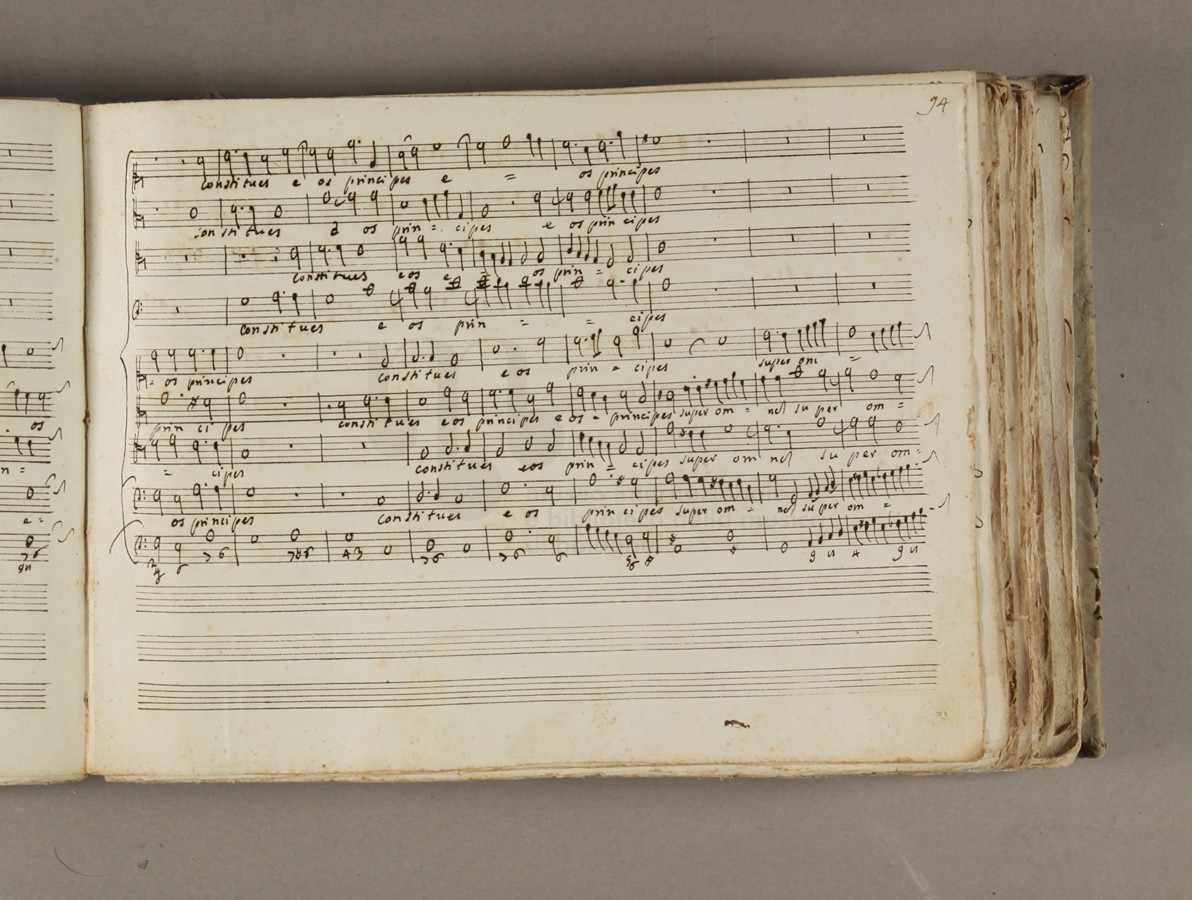 94
constitues e os principes e = os principes
constitues e os prin = cipes e os prin cipes
constitues e os e = os prin = cipes
constitues e os prin = = cipes
= os principes constitues e os prin = cipes super om =
os prin ci pes constitues e os principes e os = principes super om = nes su per om =
n = = cipes constitues e os prin = cipes super om nes su per om =
e = os principes constitues e os prin ci pes super om = nes su per om =
7 6 6 7 6 4 3 7 6 7 6 6